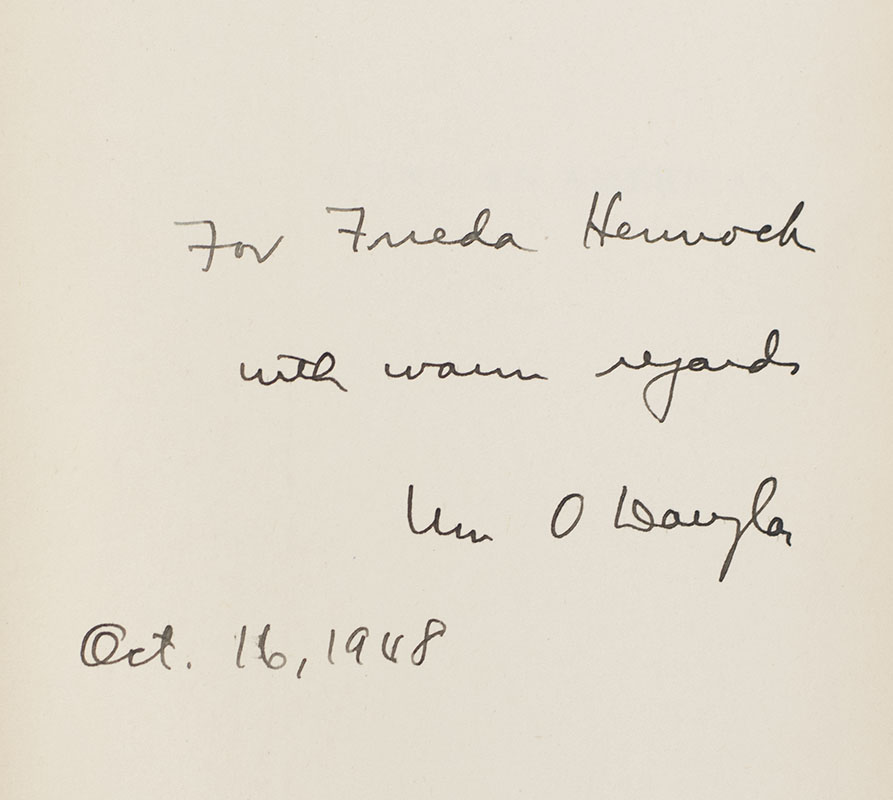 For Frieda Hennock
with warm regards
Wm O Douglas
Oct. 16, 1948